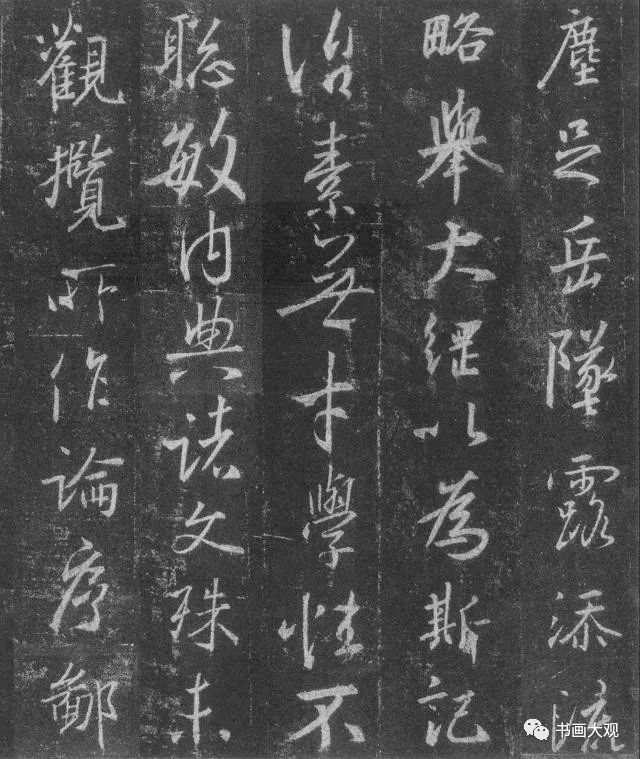 塵足岳墜露添流
略舉大綱以為斯記
治素無才學性不
聰敏內典諸文殊未
觀攬所作論序鄙
书画大观